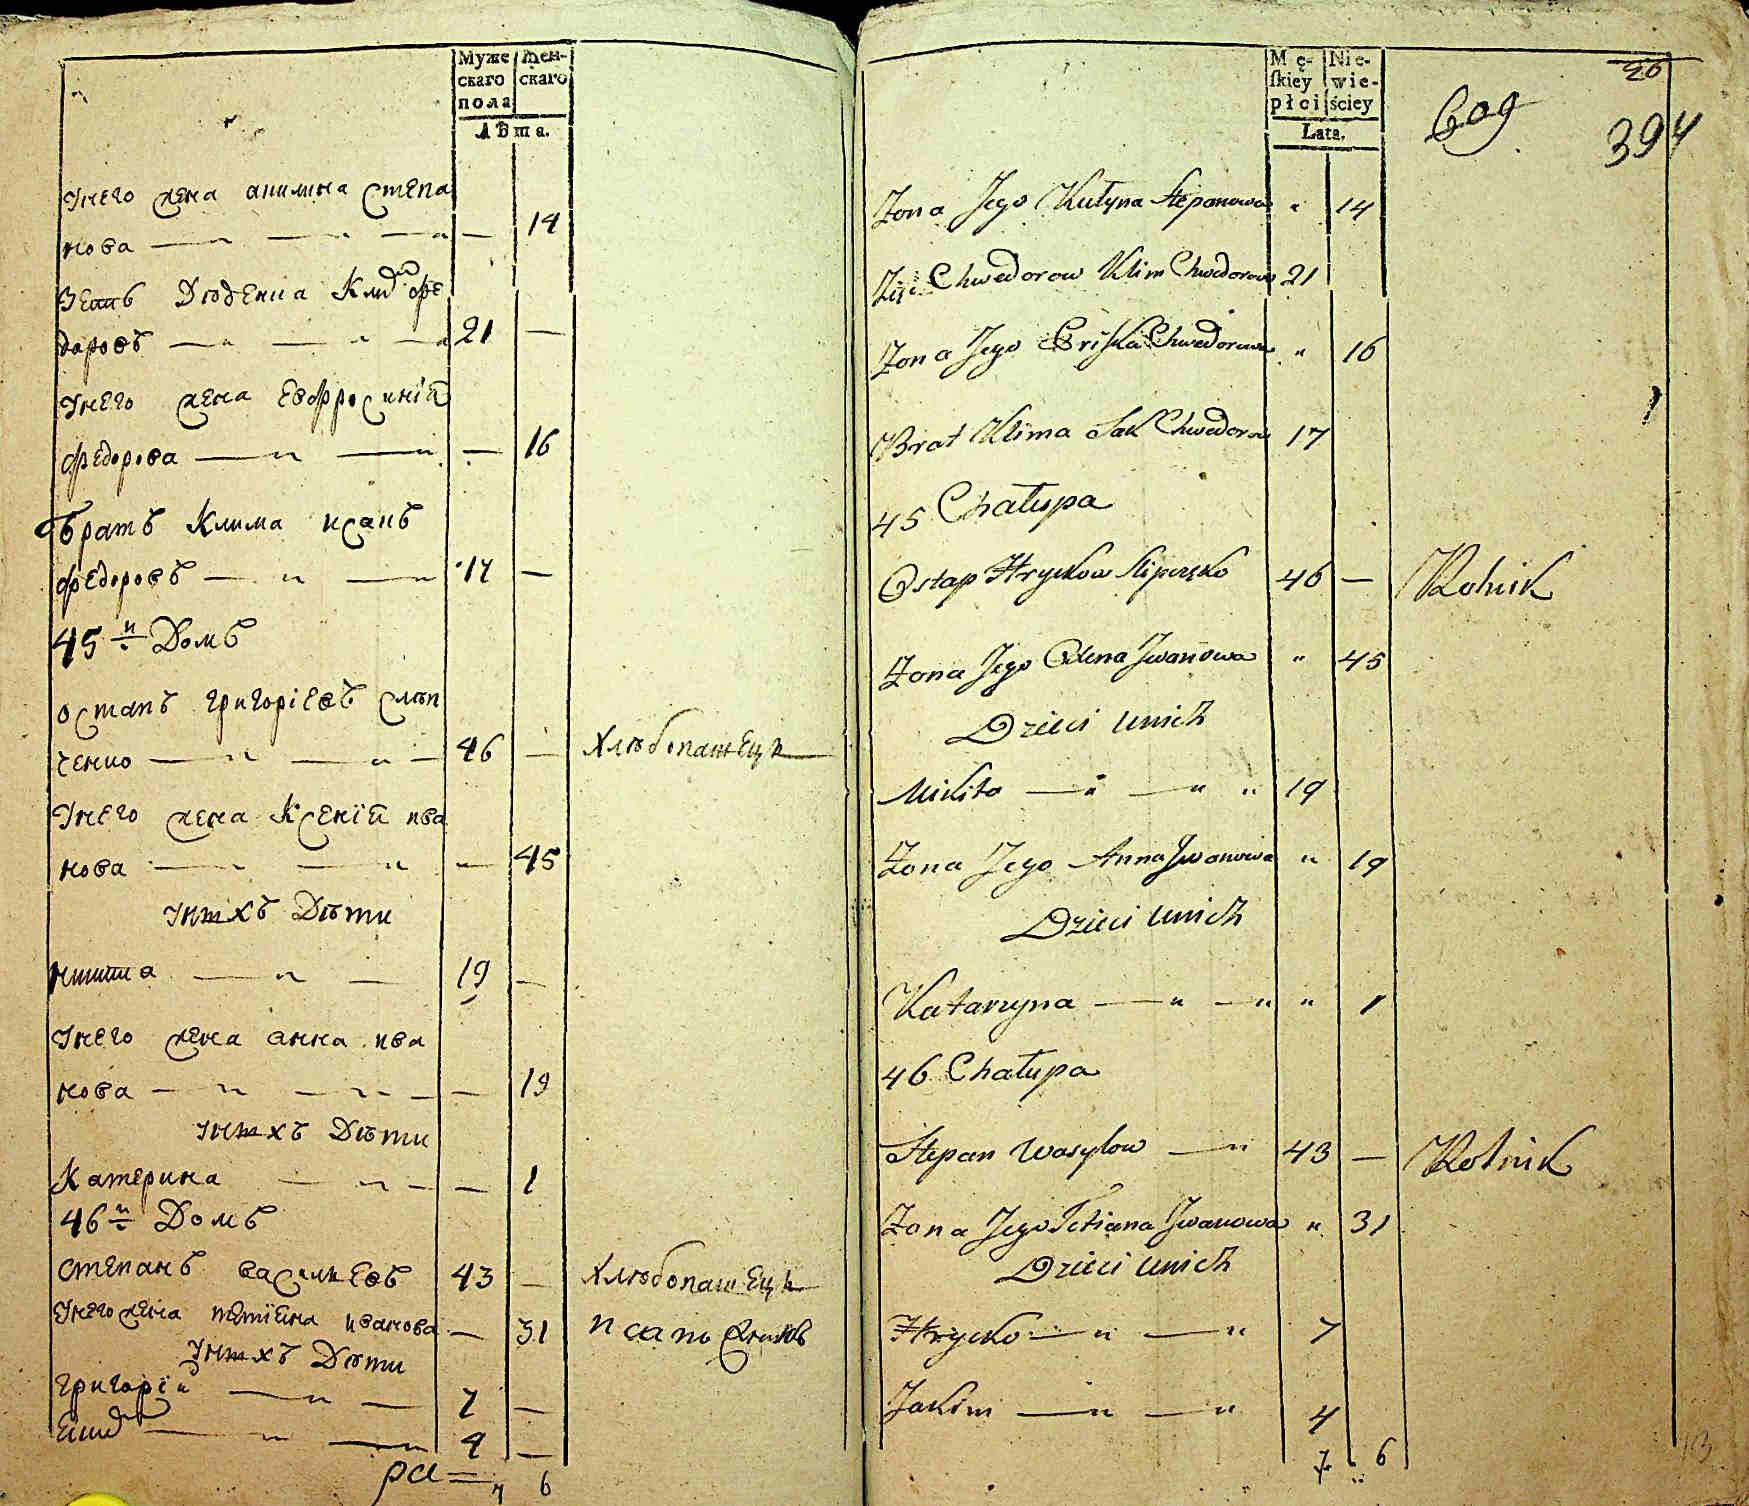 Муже
скаго
пола
Жен-
скаго
Лѣта.
Унего жена акилина Степа
нова — 14
Зять Дюденка Климъ Фе
доровъ 21 —
Унего жена Евфросинїа
федорова — 16
братъ Клима исакъ
федоровъ 17 —
45й Домъ
остапъ григорїевъ слѣп
ченко 46 — Хлѣбопашецъ
Унего жена Ксенїа ива
нова — 45
Унихъ Дѣти
никита 19 —
Унего жена анна ива
нова — 19
Унихъ Дѣти
Катерина — 1
46й Домъ
степанъ васильевъ 43 — Хлѣбопашецъ
Унего жена тетїана иванова — 31
Унихъ Дѣти
григорїй 7 —
Еким 4 —
7 6
Mę-
skiey
płci
Nie-
wie-
ściey
Lata.
26
609
394
Żona Jego Kulyna Stepanowa " 14
Zięć Chwedorow Klim Chwedorow 21
Żona Jego Pryśka Chwedorowa " 16
Brat Klima Sak Chwedorow 17
45 Chałupa
Ostap Hryckow Slipczęko 46 — Rolnik
Żona Jego Olena Jwanowa " 45
Dzieci unich
Mikita — " — " " 19
Żona Jego Anna Jwanowa " 19
Dzieci unich
Katarzyna — " — " " 1
46 Chałupa
Stepan Wasylow — " 43 — Rolnik
Żona Jego Tetiana Jwanowa " 31
Dzieci unich
Hrycko — " — " 7
Jakim — " — " 4
7 6